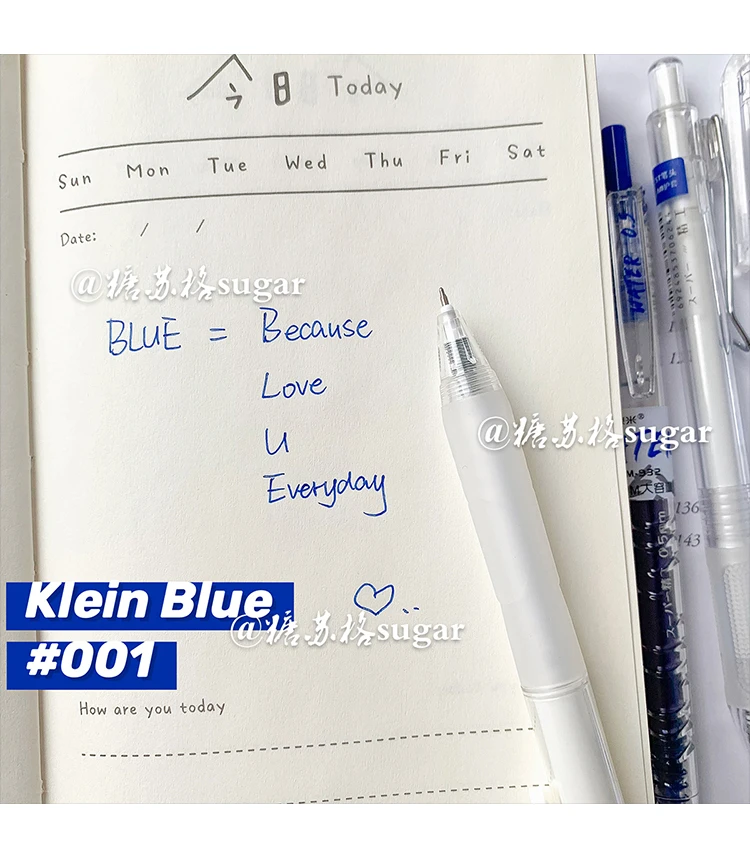 今日 Today
Sun Mon Tue Wed Thu Fri Sat
Date: / /
@糖苏格sugar
BLUE = Because
Love
U
Everyday
@糖苏格sugar
Klein Blue
#001
@糖苏格sugar
How are you today
WATER 0.5
136
143